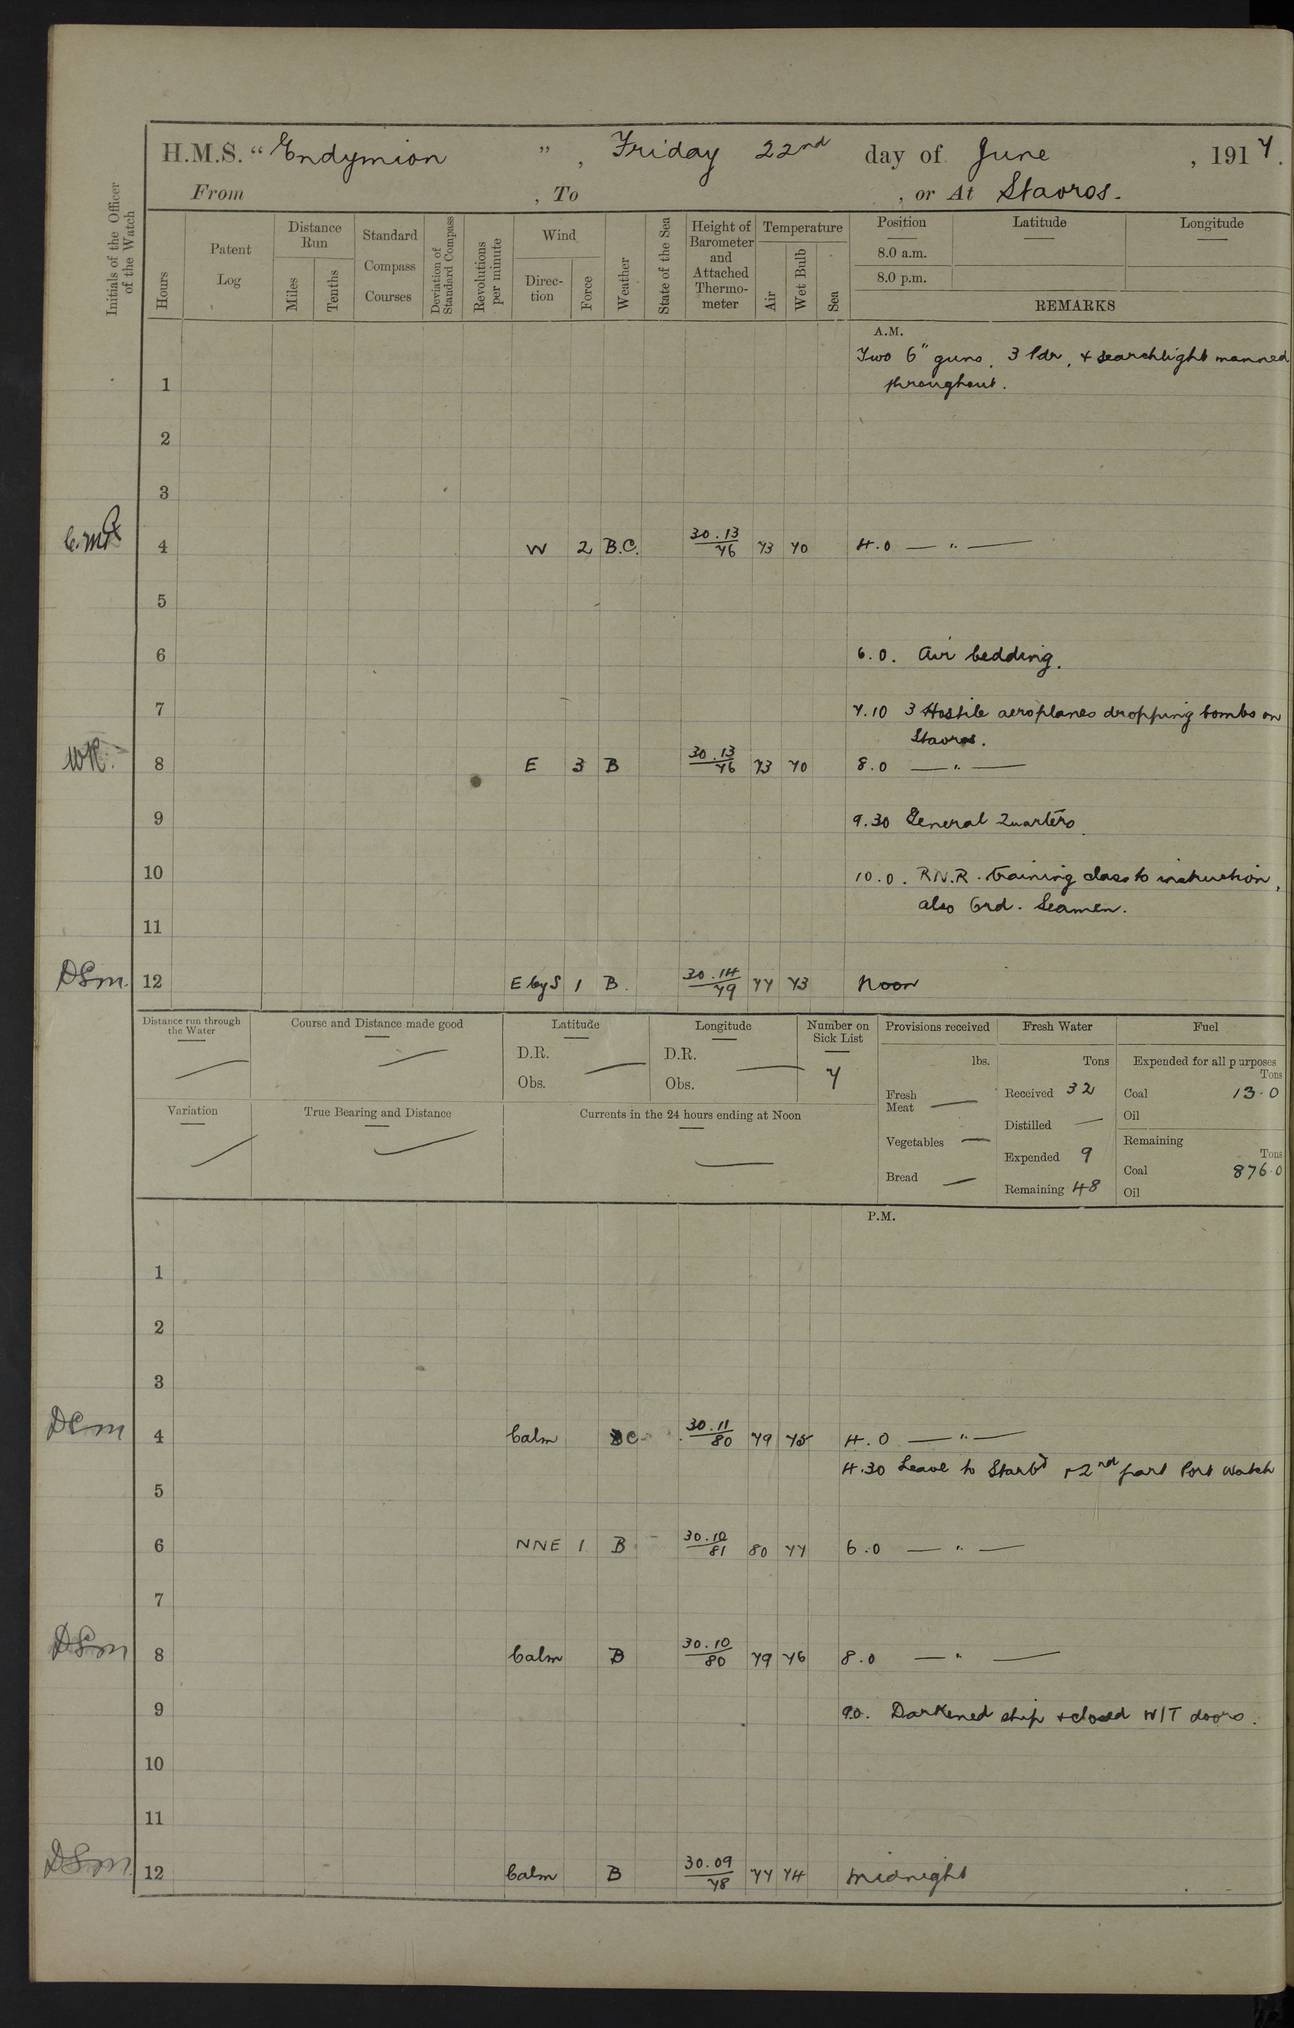 H.M.S. “ Endymion ” , Friday 22nd day of June , 1917.
From , To , or At Stavros.
Initials of the Officer of the Watch
Hours
Patent Log
Distance Run
Miles
Tenths
Standard Compass Courses
Deviation of Standard Compass
Revolutions per minute
Wind
Direc-tion
Force
Weather
State of the Sea
Height of Barometer and Attached Thermo-meter
Temperature
Air
Wet Bulb
Sea
Position Latitude Longitude
8.0 a.m.
8.0 p.m.
REMARKS
A.M.
Two 6" guns, 3 Pdr, + searchlight manned
1 throughout.
2
3
4 W 2 B.C. 30.13 76 73 70 4.0 — " —
5
6 6.0. Air bedding.
7 7.10 3 Hostile aeroplanes dropping bombs on
Stavros.
WR. 8 E 3 B 30.13 76 73 70 8.0 — " —
9 9.30 General Quarters
10 10.0. R.N.R. training class to instruction,
also Ord. Seamen.
11
DSm. 12 E by S 1 B. 30.14 79 77 73 Noon
Distance run through the Water
Course and Distance made good
Latitude
D.R.
Obs.
Longitude
D.R.
Obs.
Number on Sick List
7
Provisions received
lbs.
Fresh Meat —
Vegetables —
Bread —
Fresh Water
Tons
Received 32
Distilled —
Expended 9
Remaining 48
Fuel
Expended for all purposes
Tons
Coal 13.0
Oil
Remaining
Tons
Coal 876.0
Oil
Variation
True Bearing and Distance
Currents in the 24 hours ending at Noon
P.M.
1
2
3
DSm 4 Calm BC 30.11 80 79 75 4.0 — " —
4.30 Leave to Starbd + 2nd part Port Watch
5
6 NNE 1 B 30.10 81 80 77 6.0 — " —
7
DSm 8 Calm B 30.10 80 79 76 8.0 — " —
9 9.0. Darkened ship + closed W/T doors.
10
11
DSm 12 Calm B 30.09 78 77 74 Midnight